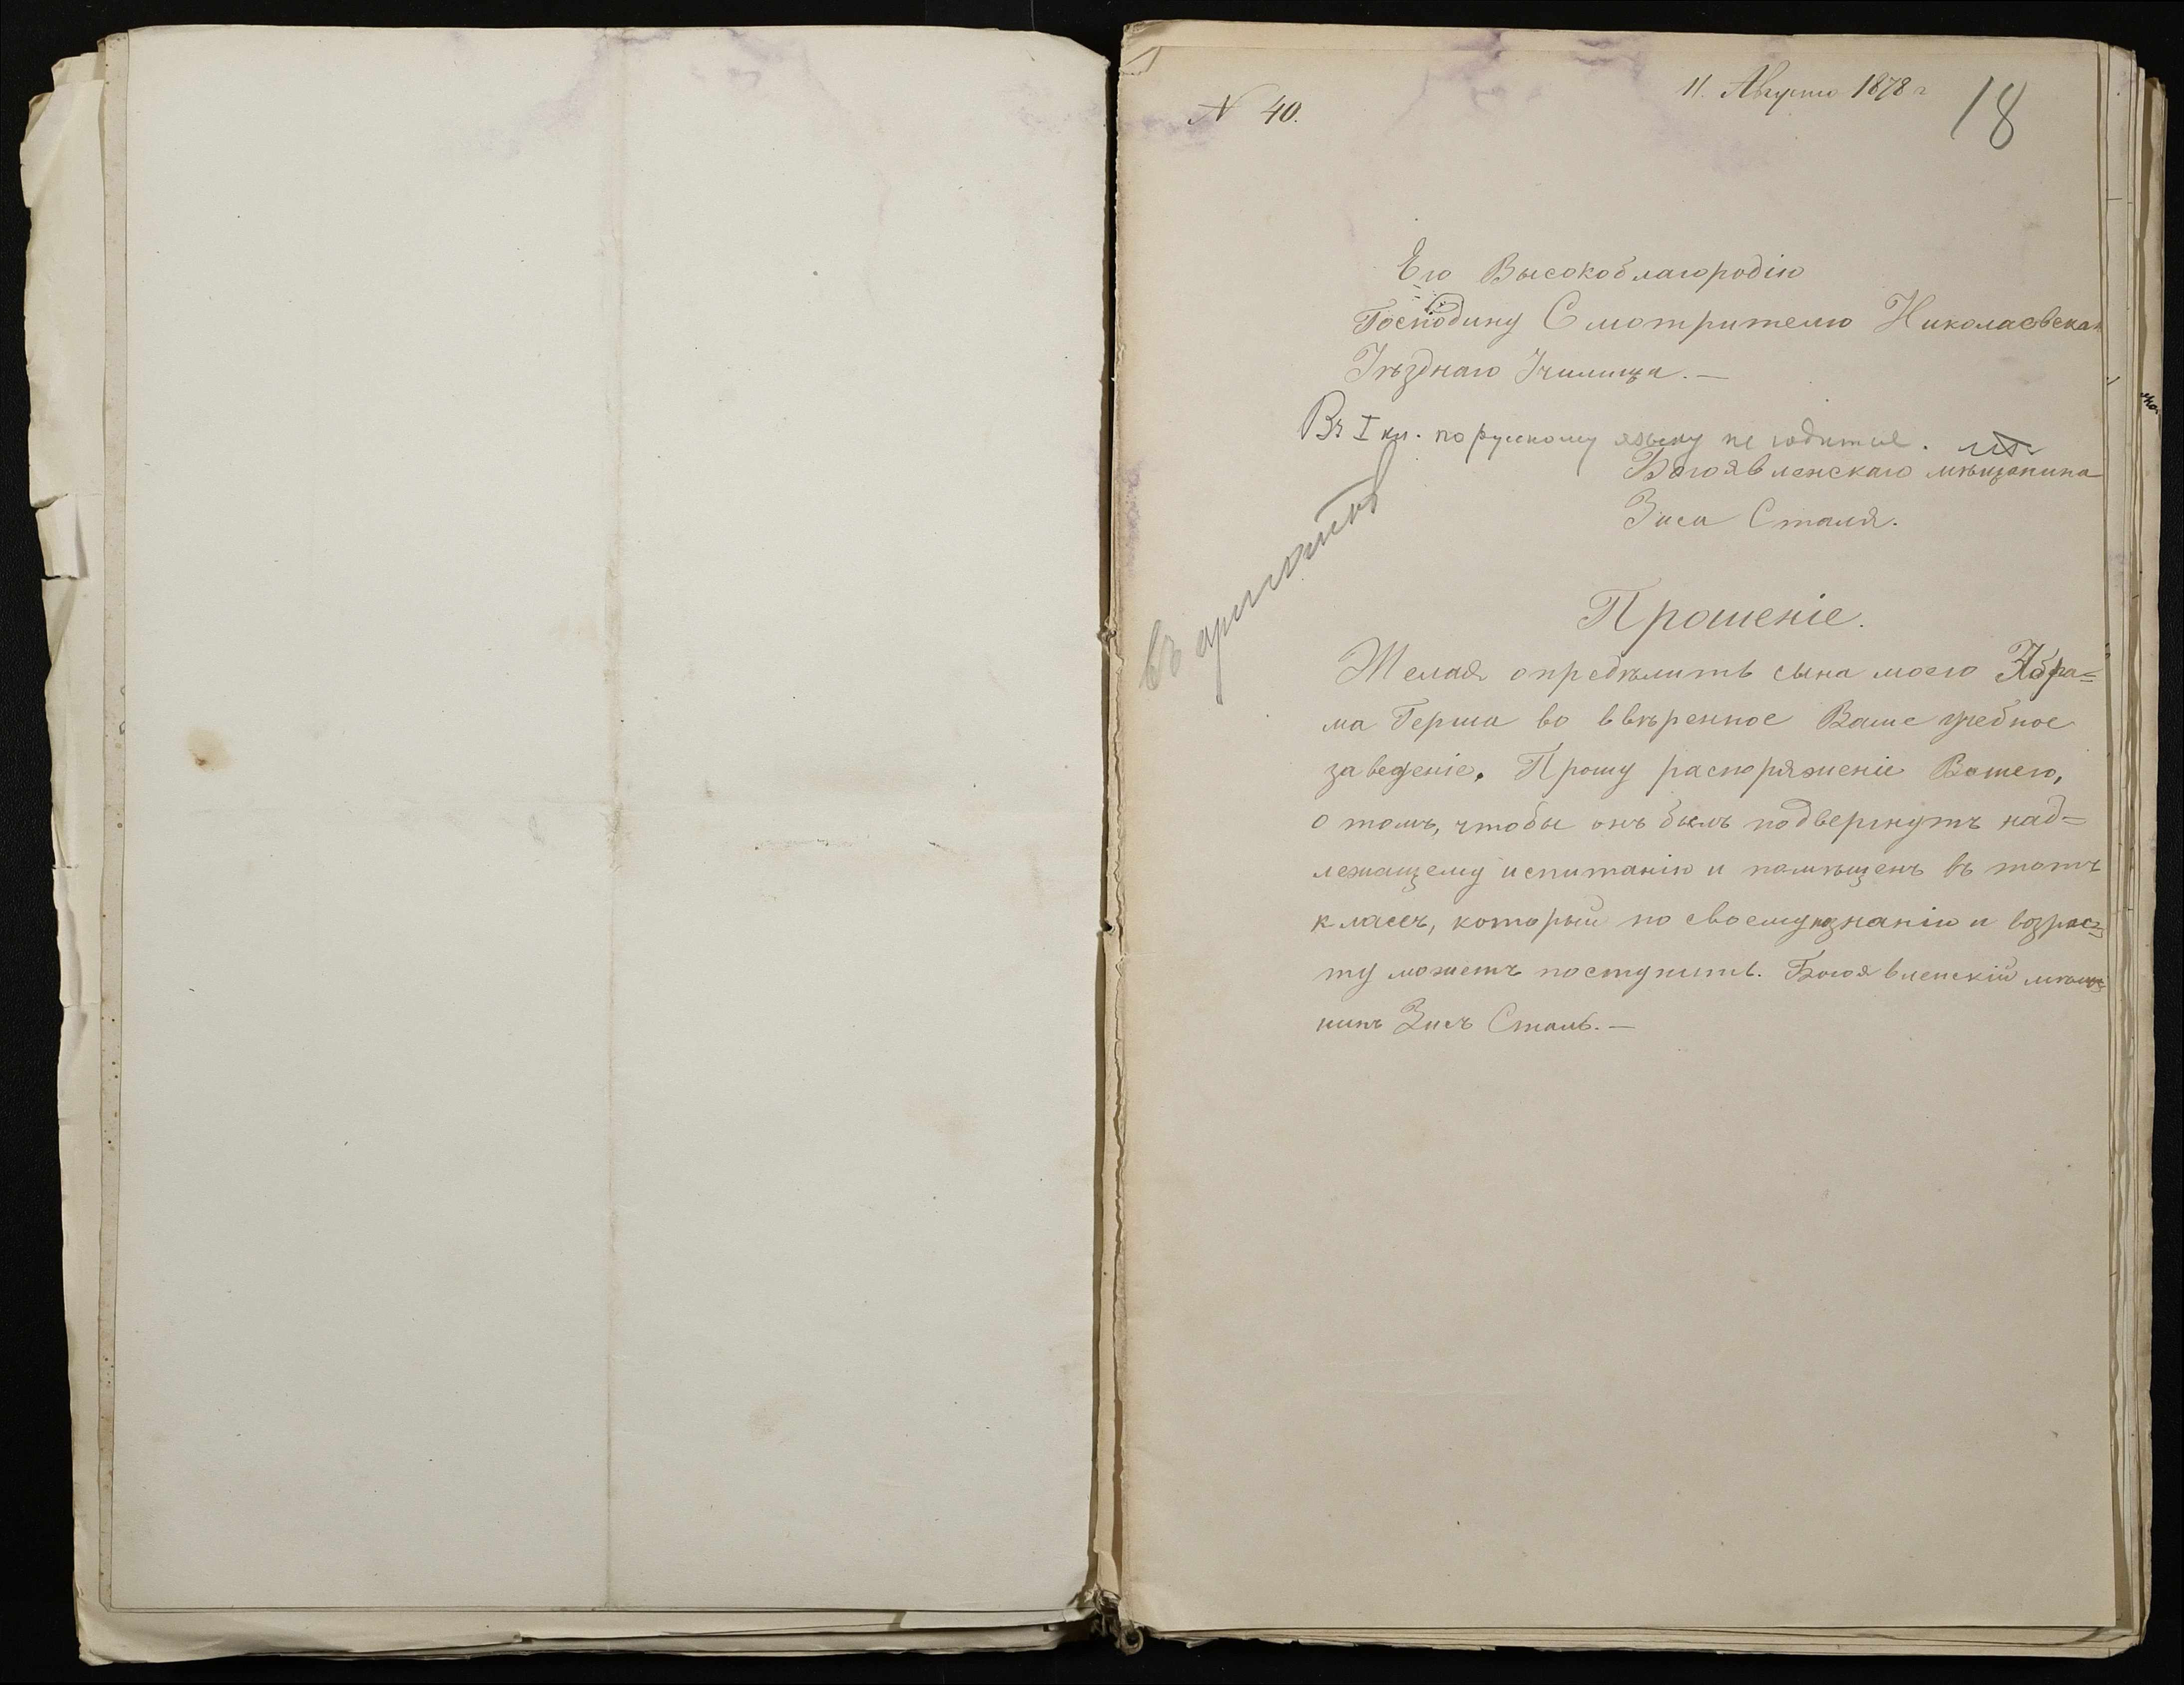 N 40.
11. Августа 1878 г
18
Его Высокоблагородію
Господину Смотрителю Николаевскаг
Уѣзднаго Училища. —
Въ I кл. по русскому языку не годится.
Богоявленскаго мѣщанина
Зиса Сталя.
въ ариѳмет
Прошеніе.
Желая опредѣлить сына моего Абра=
ма Герша во ввѣренное Ваше учебное
заведеніе. Прошу распоряженіе Вашего,
о томъ, чтобы онъ былъ подвергнутъ над=
лежащему испитанію и помѣщенъ въ тотъ
классъ, который по своему знанію и возрас=
ту можетъ поступить. Богоявленскій мѣща=
нинъ Зисъ Сталь. —